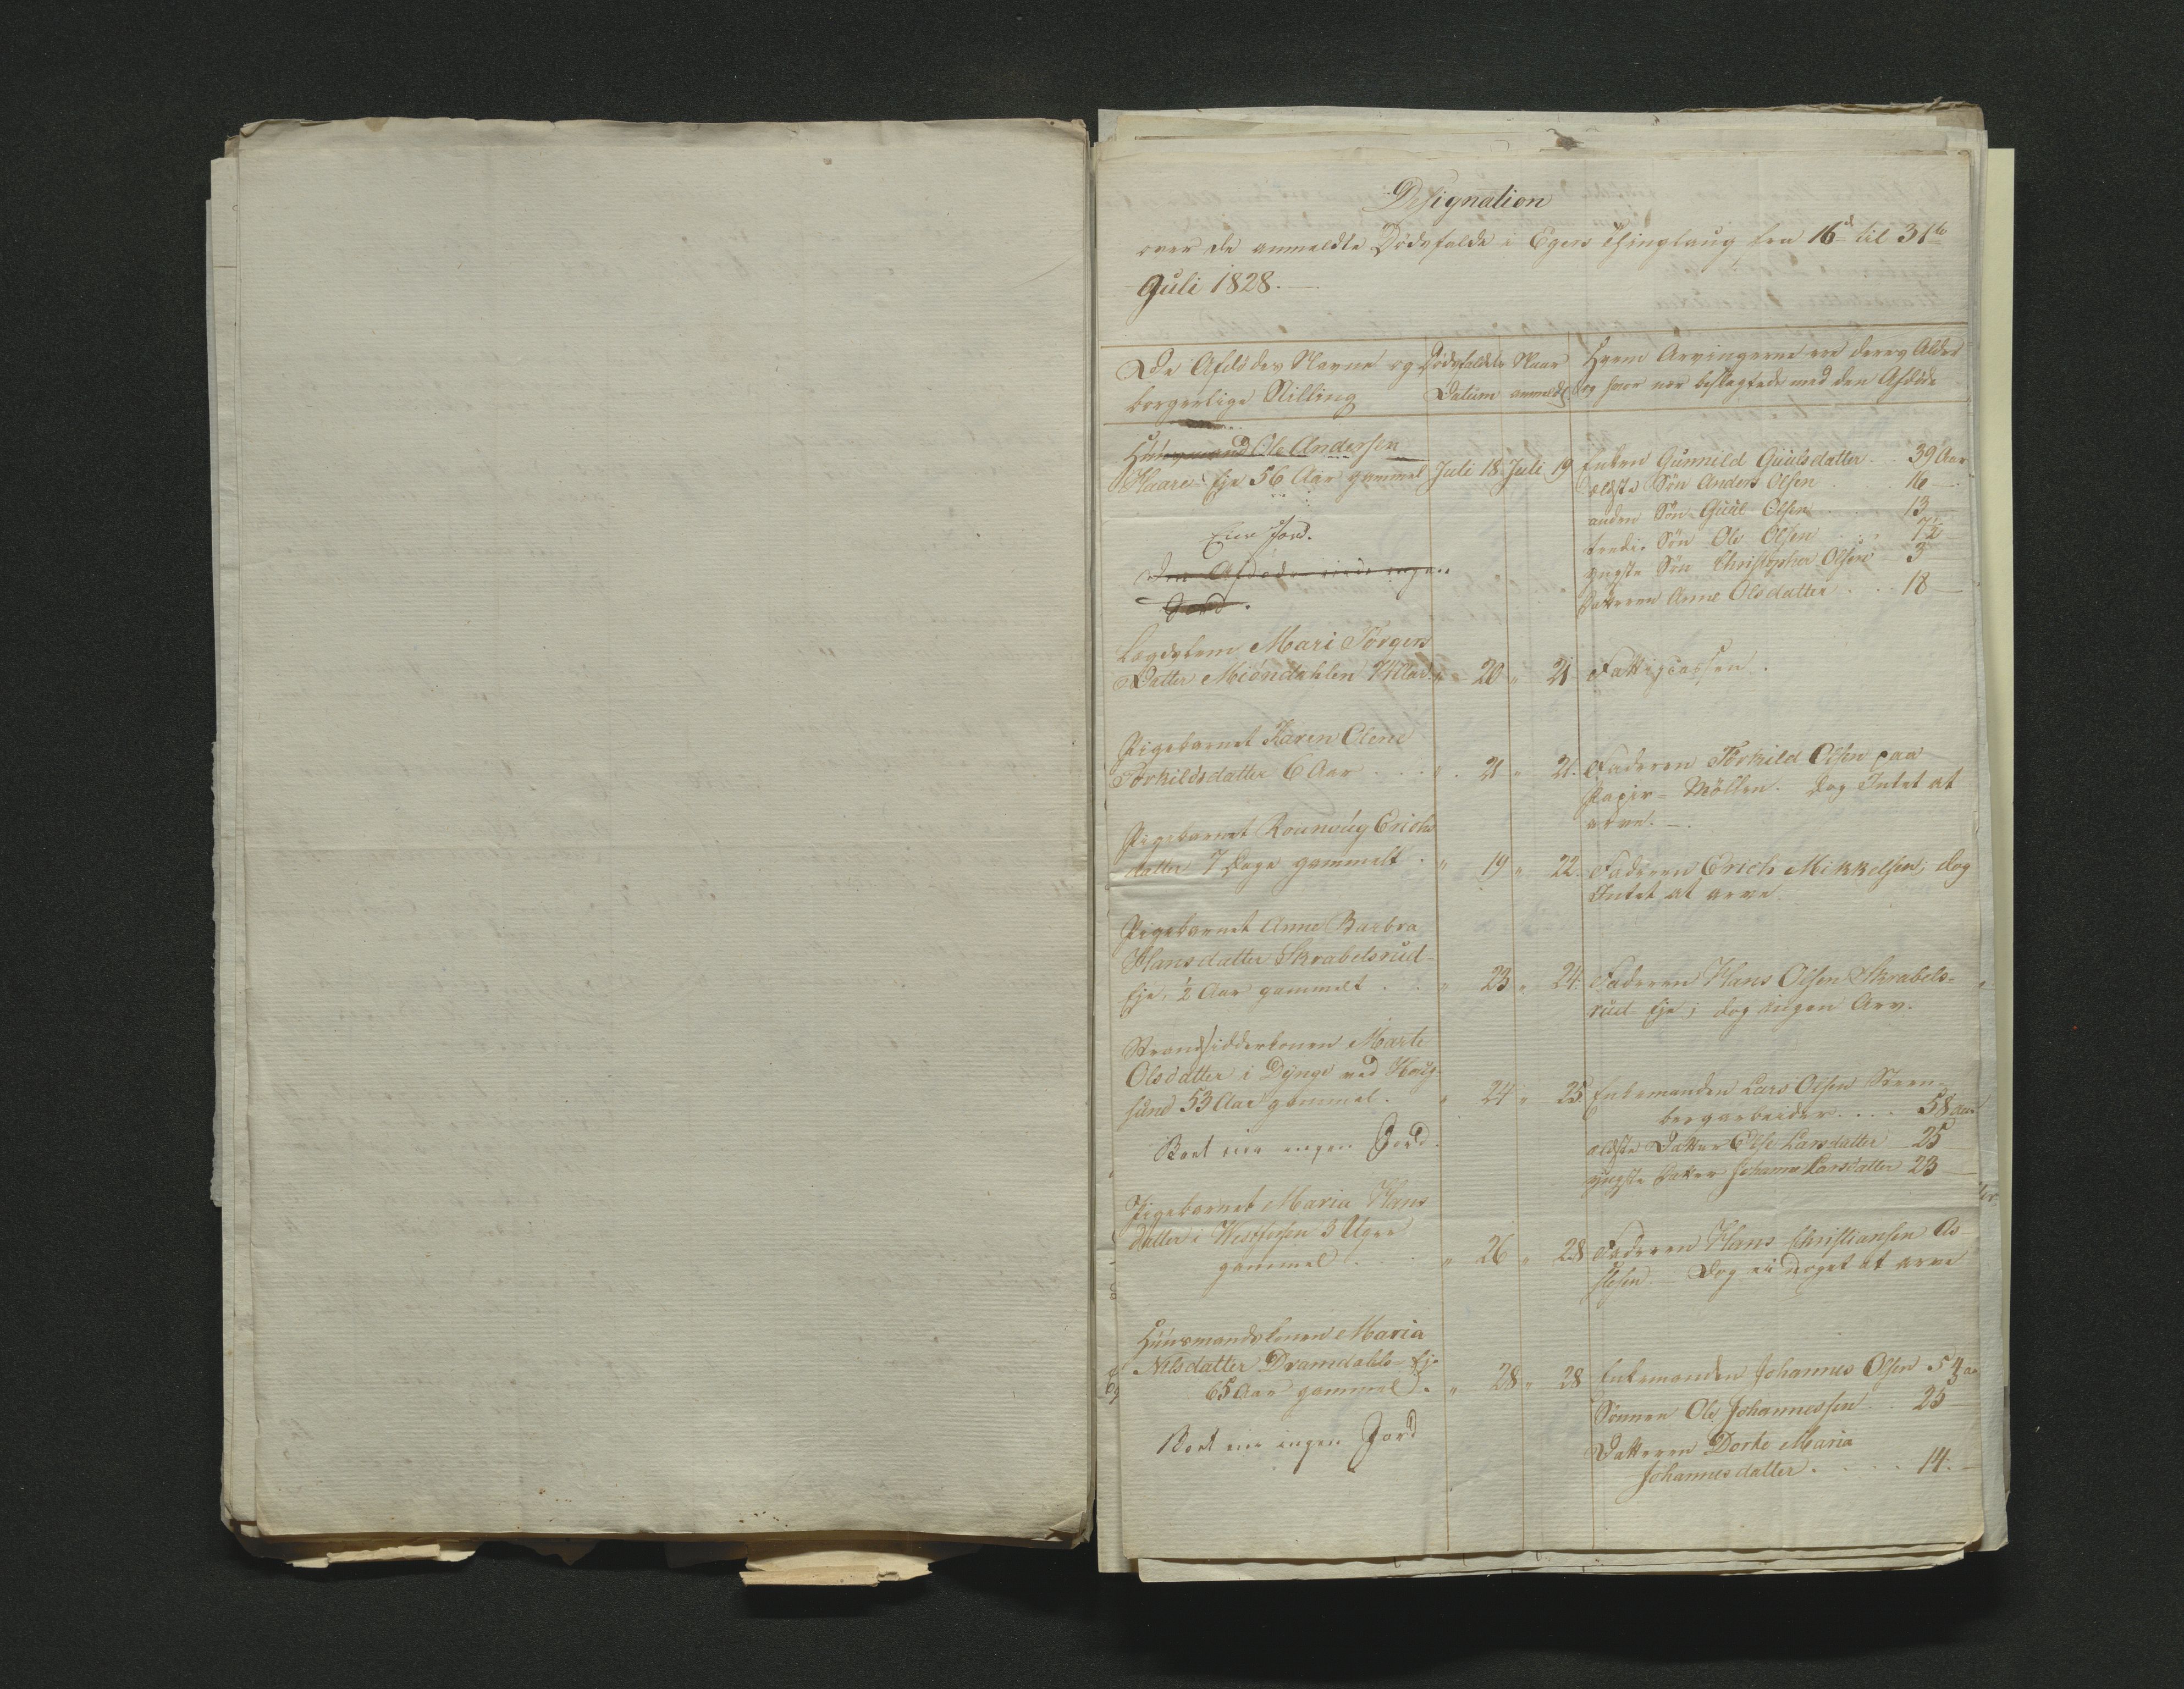 Designation
over de anmeldte Dødsfalde i Egers Thinglaug fra 16de til 31te
Juli 1828.
De Afdødes Navne og
borgerlige Stilling
Dødsfaldets
Datum
Naar
anmeldt
Hvem Arvingerne ere deres Alder
og hvor nær beslægtede med den Afdøde
Huusmand Ole Andersen
Haare Eje 56 Aar gammel Juli 18 Juli 19 Enken Gunnild Guulsdatter 39 Aar
ældste Søn Anders Olsen 16
anden Søn Guul Olsen 13
tredie Søn Ole Olsen 7½
yngste Søn Christopher Olsen 3
Datteren Anne Olsdatter 18
Eier Jord.
Den Afdøde eiede ingen
Jord.
Lægdslem Mari Jørgens
Datter Miøndahlen " 20 " 21 Fattigcassen.
Pigebarnet Karen Olene
Torkildsdatter 6 Aar " 21 " 21. Faderen Torkild Olsen paa
Papir-Møllen. dog Intet at
arve.
Pigebarnet Rounoug Erichs
datter 7 Dage gammelt " 19 " 22. Faderen Erich Mikkelsen, dog
Intet at arve
Pigebarnet Anne Barbra
Hansdatter Skrabelsrud
Eje, ½ Aar gammelt " 23 " 24. Faderen Hans Olsen Skrabels-
rud Eje; dog ingen Arv.
Strandsidderkonen Marte
Olsdatter i Dynge ved Houg-
sund 53 Aar gammel. " 24 " 25. Enkemanden Lars Olsen Steen-
bergarbeider 58 aar
ældste Datter Else Larsdatter 25
yngste Datter Johanne Larsdatter 23
Boet eier ingen Jord.
Pigebarnet Maria Hans
datter i Westfossen 3 Uger
gammel " 26 " 28 Faderen Hans Christiansen
Dog ei noget at arve
Huusmandskonen Maria
Nilsdatter Dramdahls-Eje
65 Aar gammel. " 28 " 28 Enkemanden Johannes Olsen 54 aar
Sønnen Ole Johannessen 25
Datteren Dorte Maria
Johannesdatter 14.
Boet eier ingen Jord